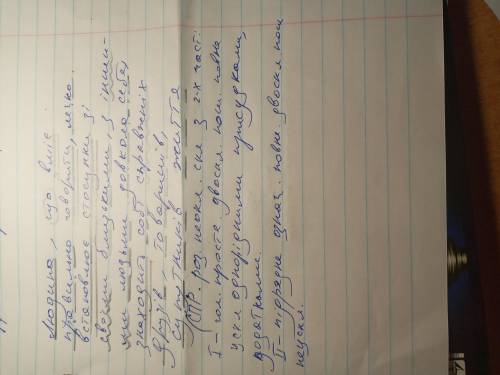 Людина, що вміє
правильно говорити, легко
встановлює стосунки зі
своїми близькими, з інши-
ми людьми довкола себе,
знаходить собі справжніх
друзів, товаришів,
супутників життя
СПР. роз. неокл. скл з 2-х част.
I – гол. просте двоскл. пош. повне
ускл однорідними присудками,
додатками.
II – підрядне означ. повне двоскл пош
неускл.